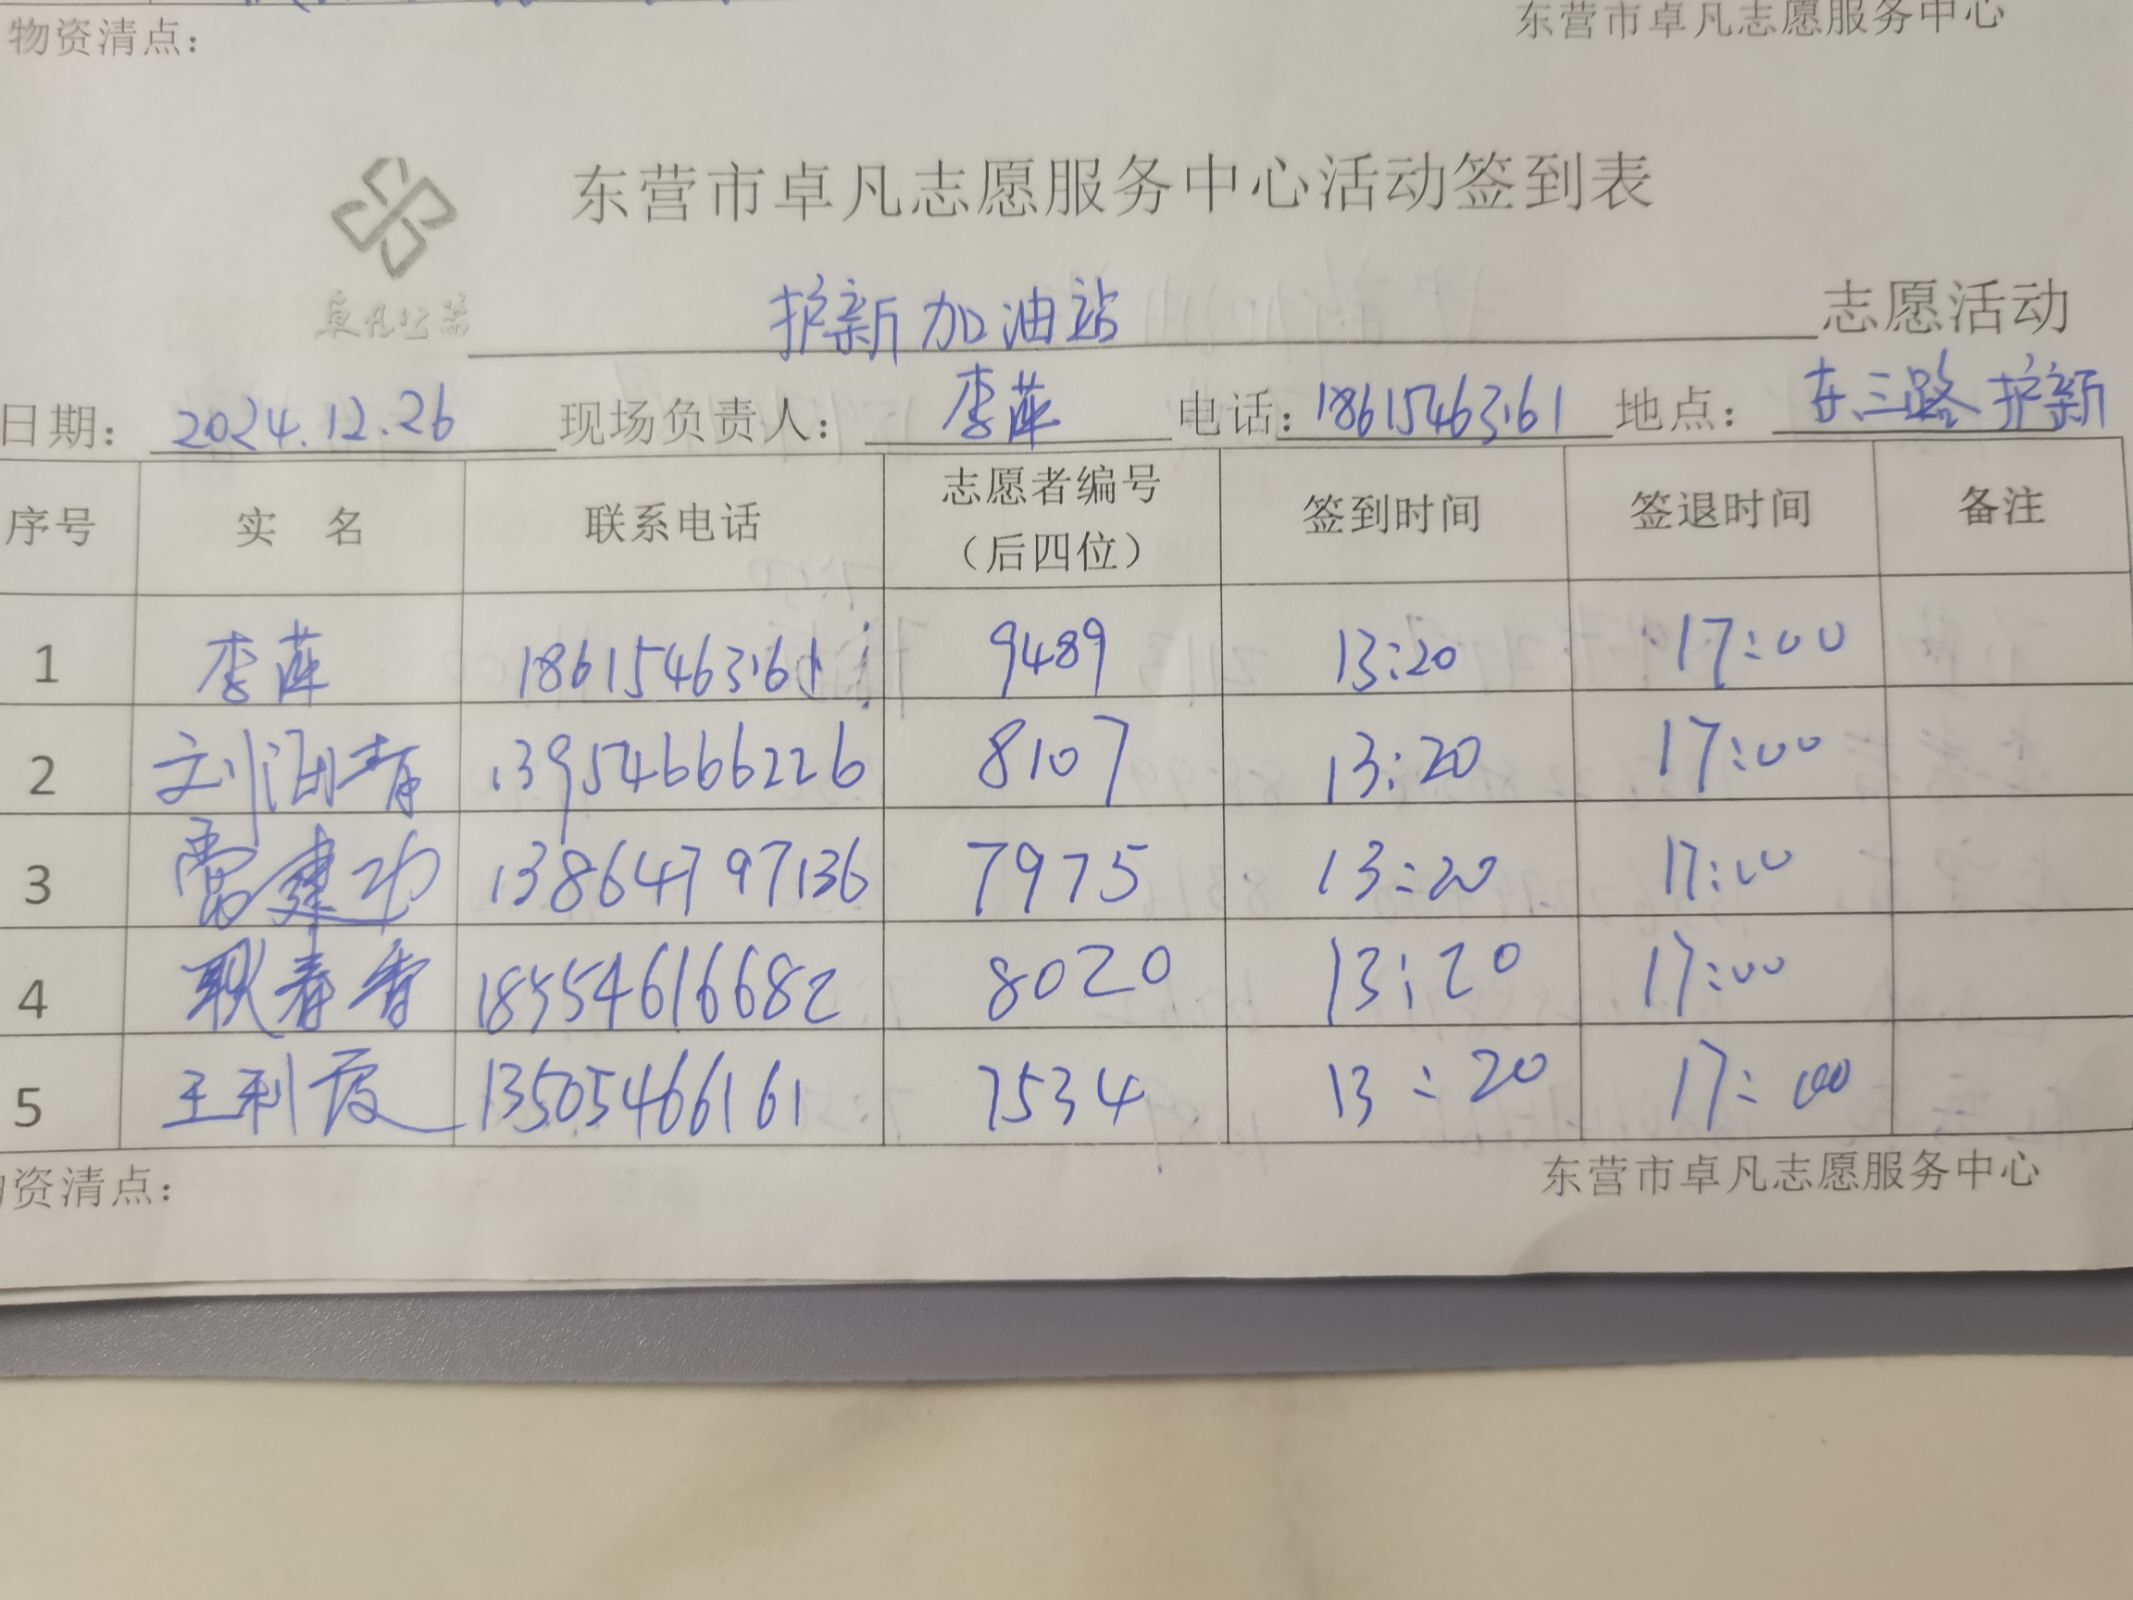 物资清点： 东营市卓凡志愿服务中心
东营市卓凡志愿服务中心活动签到表
卓凡公益
护新加油站 志愿活动
日期：2024.12.26 现场负责人：李萍 电话：18615463161 地点：东三路护新
序号 实 名 联系电话 志愿者编号（后四位） 签到时间 签退时间 备注
1 李萍 18615463161 9489 13:20 17:00
2 刘海青 13954666226 8107 13:20 17:00
3 雷建功 13864797136 7975 13:20 17:00
4 耿春香 18554616682 8020 13:20 17:00
5 王利霞 13505466161 7534 13:20 17:00
物资清点： 东营市卓凡志愿服务中心